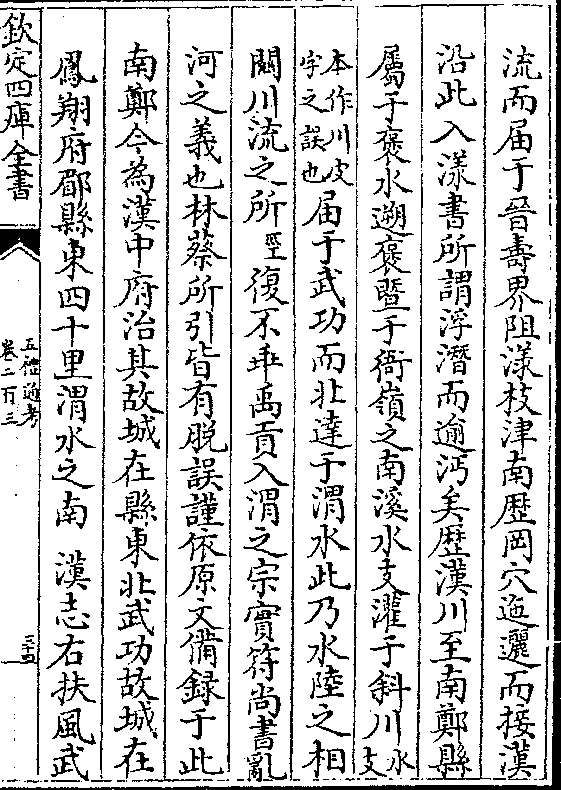 流而届于晉壽界阻漾枝津南歴岡穴迤邐而接漢
沿此入漾書所謂浮潛而逾沔矣歴漢川至南鄭縣
屬于褒水遡褒暨于衙嶺之南溪水支灌于斜川水支
本作川皮字之誤也届于武功而北達于渭水此乃水陸之相
關川流之所經復不乖禹貢入渭之宗實符尚書亂
河之義也林蔡所引皆有脱誤謹依原文備録于此
南鄭今為漢中府治其故城在縣東北武功故城在
鳳翔府郿縣東四十里渭水之南　漢志右扶風武
欽定四庫全書
五禮通考
卷二百三
三十四